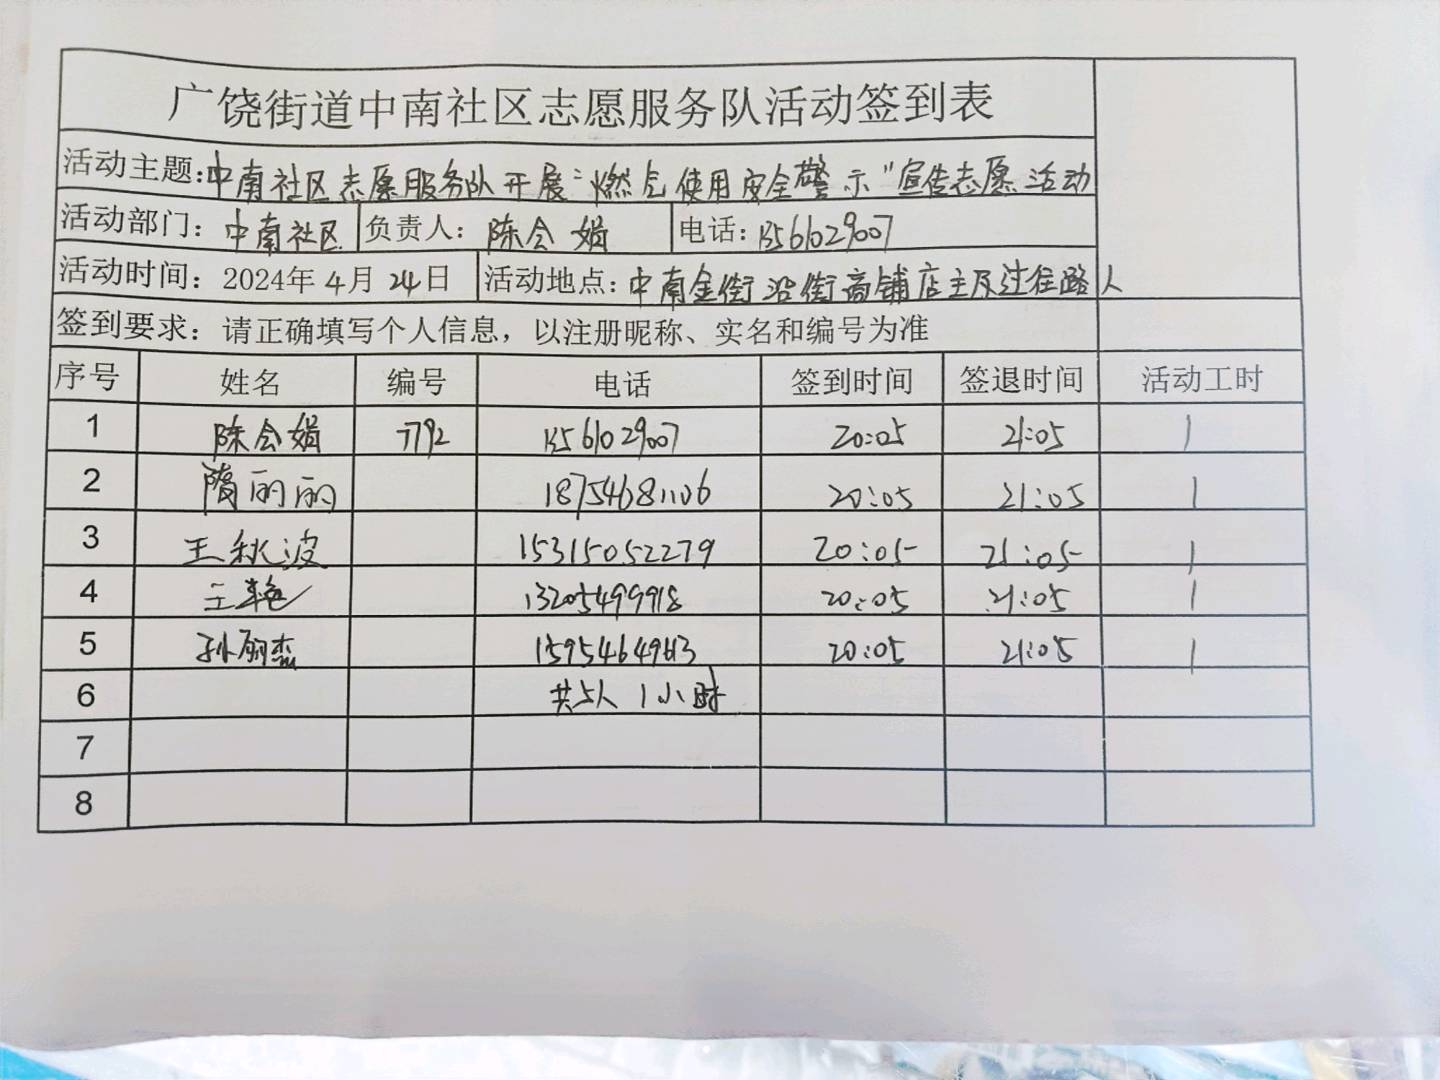 广饶街道中南社区志愿服务队活动签到表
活动主题:中南社区志愿服务队开展“燃气使用安全警示”宣传志愿活动
活动部门: 中南社区 负责人: 陈会娟 电话:13561029007
活动时间: 2024年4月24日 活动地点: 中南金街沿街商铺店主及过往路人
签到要求: 请正确填写个人信息，以注册昵称、实名和编号为准
序号 姓名 编号 电话 签到时间 签退时间 活动工时
1 陈会娟 7792 13561029007 20:05 21:05 1
2 隋丽丽 18754681106 20:05 21:05 1
3 王秋波 15315052279 20:05 21:05 1
4 王艳 13205499918 20:05 21:05 1
5 孙丽 20:05 21:05 1
6 共5人 1小时
7
8